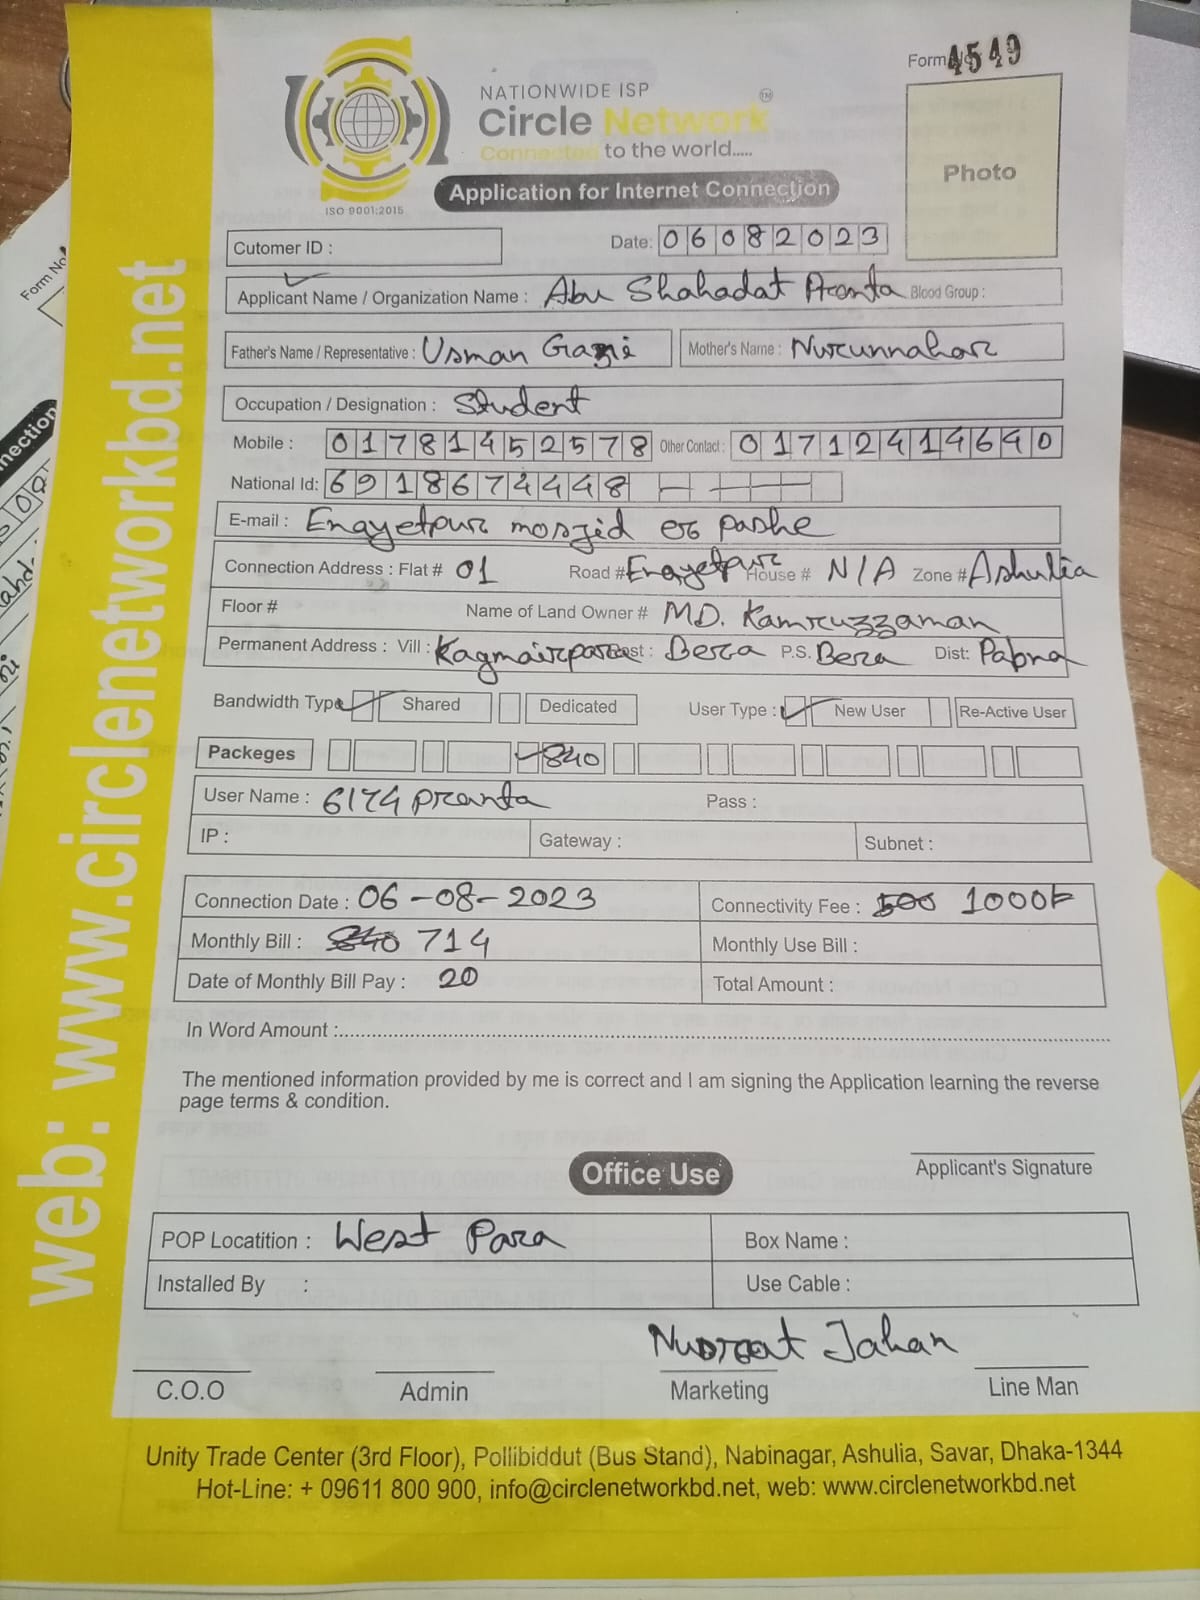 Form No 4549
NATIONWIDE ISP
Circle Network TM
Connected to the world.....
ISO 9001:2015
Application for Internet Connection
Photo
Cutomer ID :
Date: 06082023
Applicant Name / Organization Name : Abu Shahadat Pranta Blood Group :
Father's Name / Representative : Usman Gazi Mother's Name : Nurunnahar
Occupation / Designation : Student
Mobile : 01781452578 Other Contact : 01712414640
National Id: 6918674448
E-mail : Enayetpur mosjid er pashe
Connection Address : Flat # 01 Road # Enayetpur House # N/A Zone # Ashulia
Floor # Name of Land Owner # MD. Kamruzzaman
Permanent Address : Vill : Kagmairpara Post : Bera P.S. Bera Dist: Pabna
Bandwidth Type Shared Dedicated User Type : New User Re-Active User
Packeges 840
User Name : 6174pranta Pass :
IP : Gateway : Subnet :
Connection Date : 06-08-2023 Connectivity Fee : 500 1000৳
Monthly Bill : 840 714 Monthly Use Bill :
Date of Monthly Bill Pay : 20 Total Amount :
In Word Amount :
The mentioned information provided by me is correct and I am signing the Application learning the reverse
page terms & condition.
Applicant's Signature
Office Use
POP Locatition : West Para Box Name :
Installed By : Use Cable :
Nusrat Jahan
C.O.O Admin Marketing Line Man
Unity Trade Center (3rd Floor), Pollibiddut (Bus Stand), Nabinagar, Ashulia, Savar, Dhaka-1344
Hot-Line: + 09611 800 900, info@circlenetworkbd.net, web: www.circlenetworkbd.net
web: www.circlenetworkbd.net
Form No